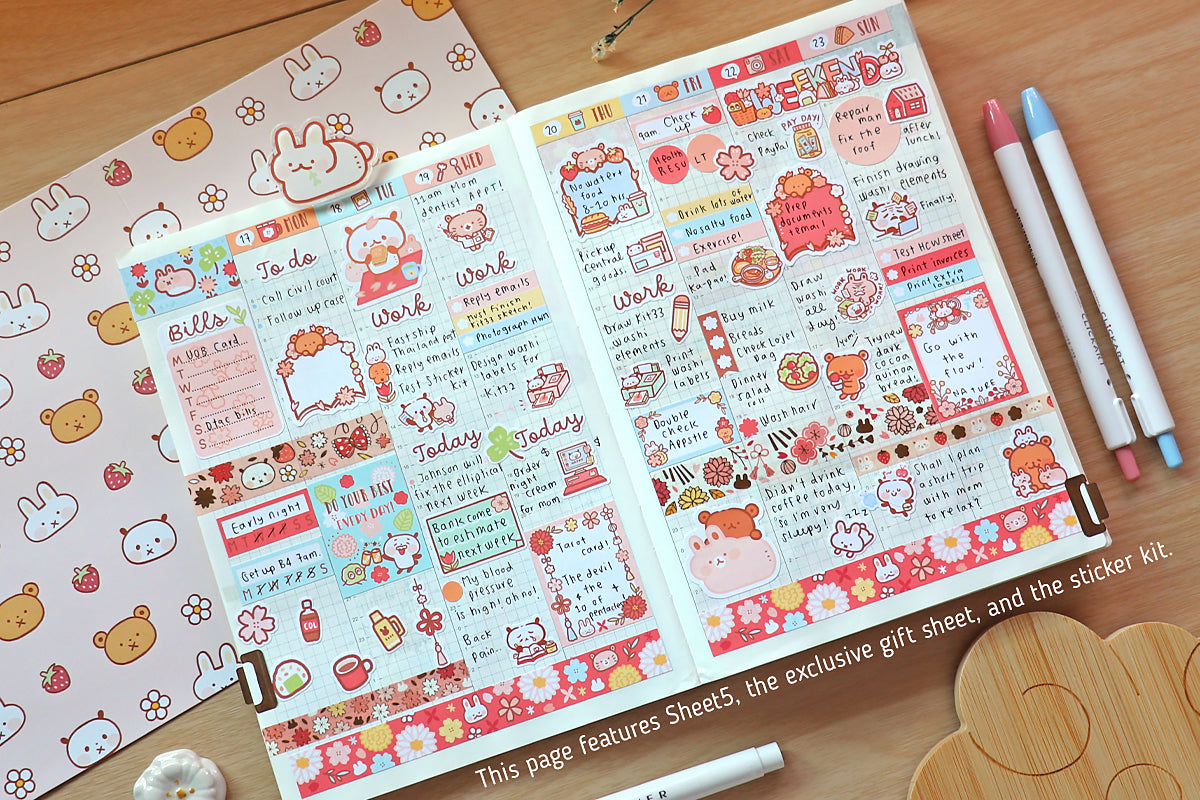 17 MON
To do
Call civil court
Follow up case
Bills
M UOB Card
T
W
T
F
S Dtac Bills
S
Early night
M T W T F S S
Get up B4 7am.
M T W T F S S
COL
18 TUE
Work
Fast ship
Thailand post
Reply emails
Test sticker
Kit
Today
Johnson will
fix the elliptical
next week
DO YOUR BEST
EVERY DAY!
19 WED
11am Mom
dentist Appt!
Work
Reply emails
Must finish
Kit33 sketch!
Photograph HWM
Design washi
labels for
Kit32
Today
Order
night
cream
for mom
Bank come
to estimate
next week
My blood
pressure
is high! oh no!
Back
pain..
Tarot
card!
The devil
+ the
10 of
pentacle!
20 THU
No water+
food
8-10 hrs
Pick up
Central
goods.
Work
Draw Kit33
washi
elements
Print
washi
labels
Double
check
Appstle
21 FRI
9am. Check
up
Health
RESULT
Drink lots of
water
No salty food
Exercise!
Pad
Ka-pao!
Buy milk
Breads
Check Lot
Day
Dinner
salad
roll
Wash hair
22 SAT
WEEKEND
Check
PayPal
PAY DAY!
Prep
documents
+ email
Draw
washi
all
day!
WORK WORK WORK!
Yum!
Didn't drink
coffee today,
so i'm very
sleepy!
zzz
23 SUN
Repair
man
fix the
roof
after
lunch!
Finish drawing
washi elements
Finally!
Test HCW sheet
Print invoices
Print extra
labels
Try new
dark
cocoa
quinoa
bread!
Go with
the
flow!
NATURE
Shall I plan
a short trip
with mom
to relax?
CLICKART
CLICKART
This page features Sheet5, the exclusive gift sheet, and the sticker kit.